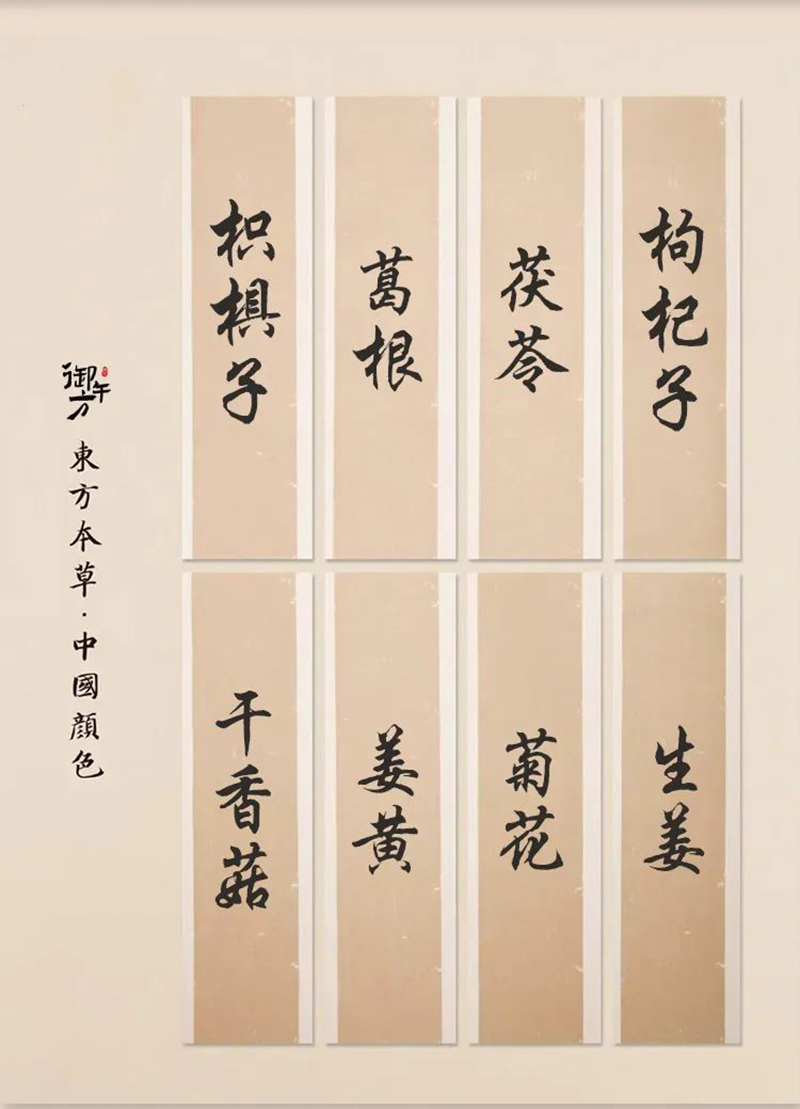 枸杞子
茯苓
葛根
枳椇子
生姜
菊花
姜黄
干香菇
御午方
東方本草·中國顔色